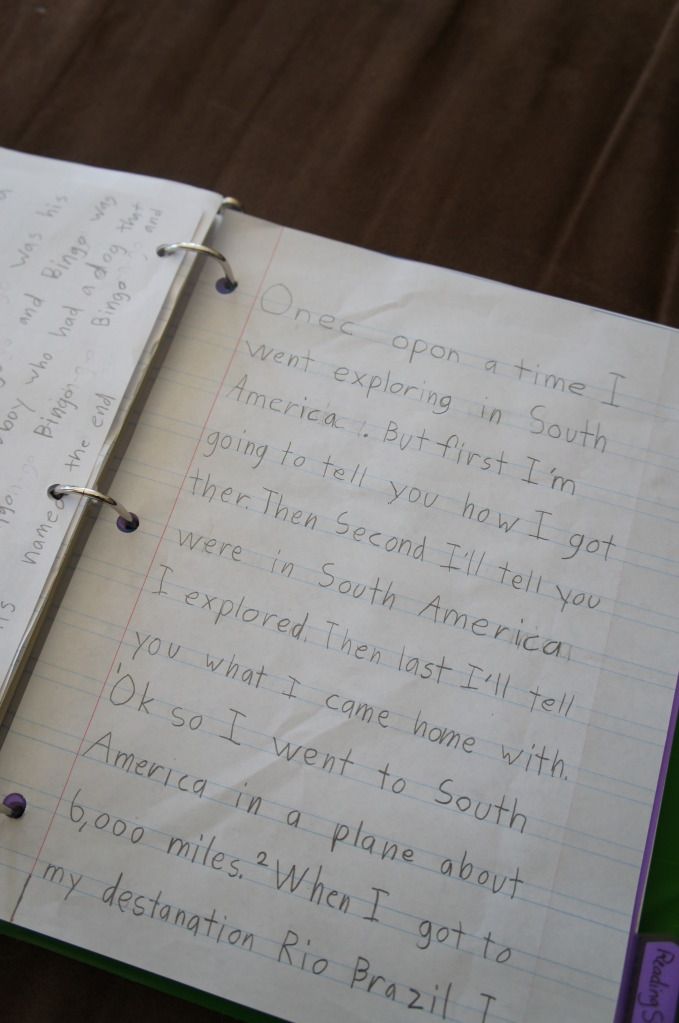 was his
and Bingo was
boy who had a dog that
Bingo Bingo and
named the end
Onec opon a time I
went exploring in South
America. But first I'm
going to tell you how I got
ther. Then Second I'll tell you
were in South America
I explored. Then last I'll tell
you what I came home with.
'Ok so I went to South
America in a plane about
6,000 miles. ²When I got to
my destanation Rio Brazil I
Reading S